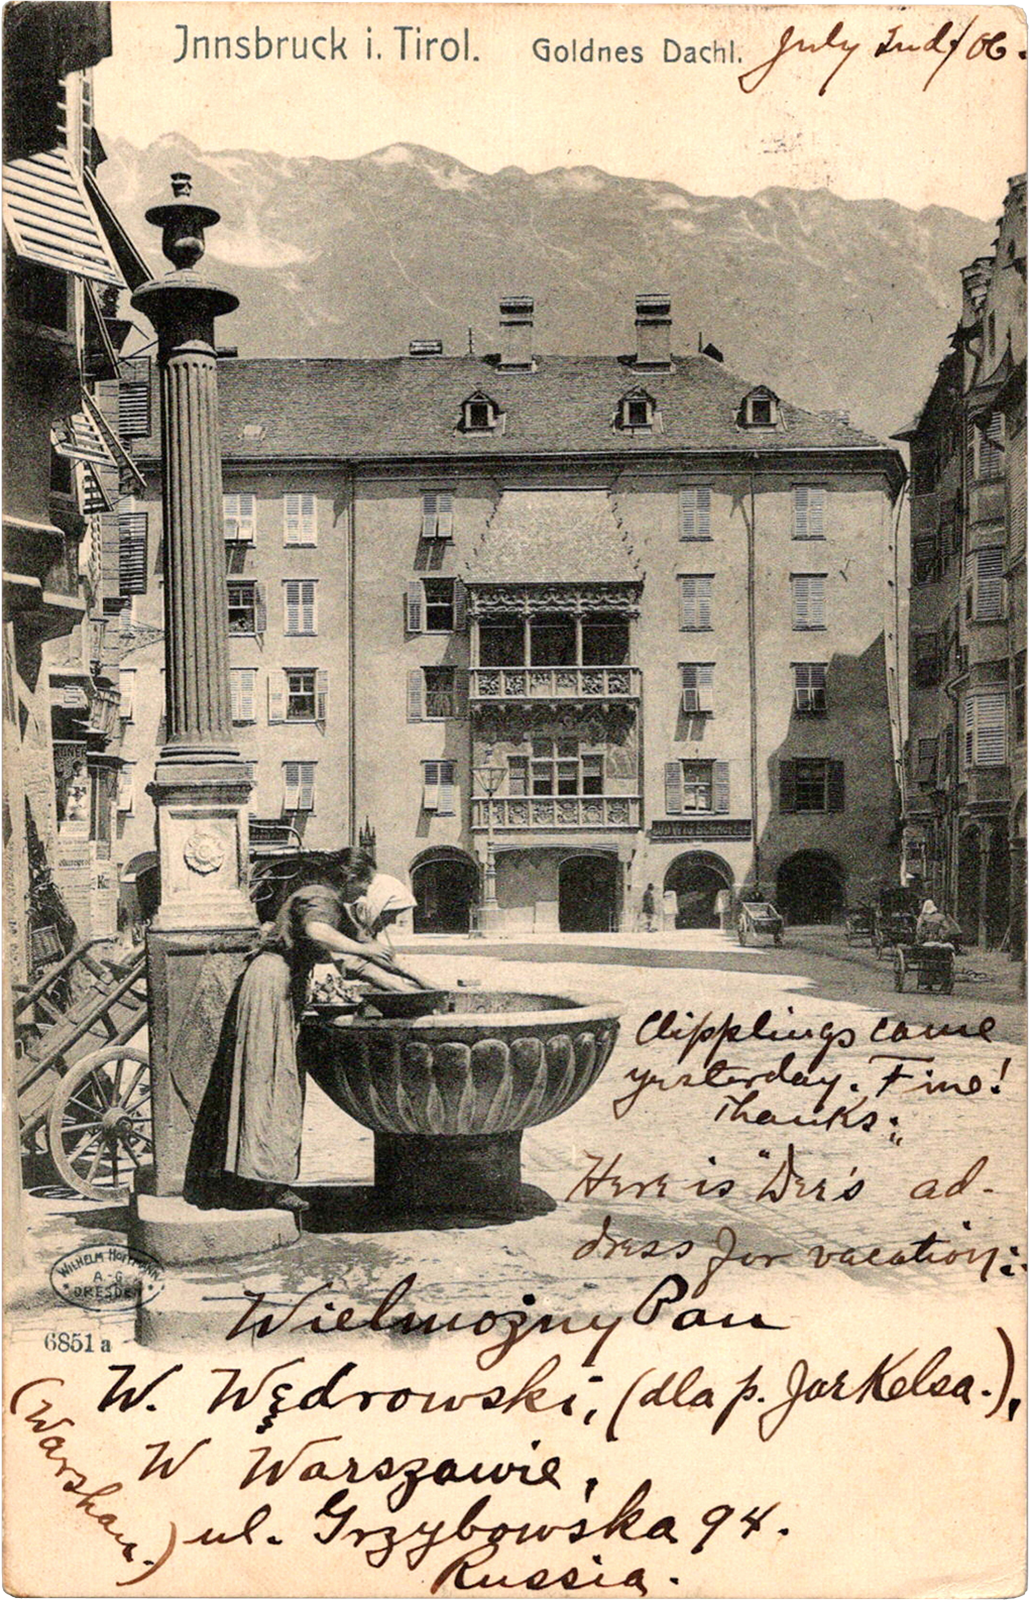 Innsbruck i. Tirol. Goldnes Dachl.
July 2nd/06.
Clipplings came
yesterday. Fine!
Thanks.
Here is "Wer's ad-
dress for vacation:
WILHELM HOFFMANN
A-G
DRESDEN
6851 a
Wielmożny Pan
W. Wędrowski, (dla p. Jarkelsa.),
W Warszawie,
(Warshau.)
ul. Grzybowska 94.
Russia.